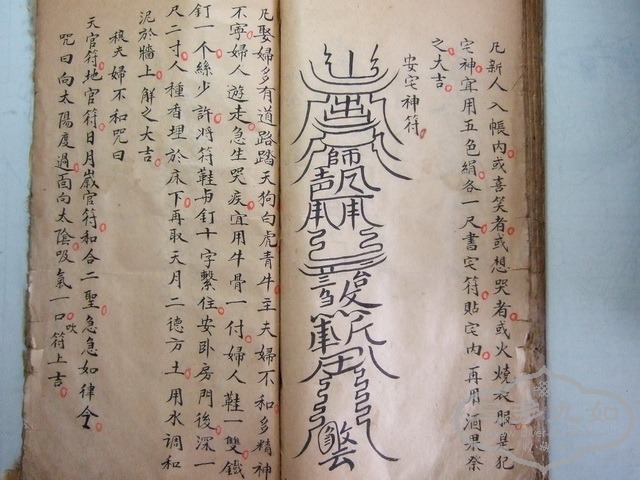 凡新人入帳內或喜笑者或想哭者或火燒衣服是犯
宅神宜用五色絹各一尺書宅符貼宅內再用酒果祭
之大吉
安宅神符
凡娶婦多有道路踏天狗白虎青牛主夫婦不和多精神
不寧婦人遊走急生哭疾宜用牛骨一付婦人鞋一雙鐵
釘一个絲少許將符鞋与釘十字繫住安臥房門後深一
尺二寸人種香埋於床下再取天月二德方土用水調和
泥於牆上解之大吉
禳夫婦不和咒曰
天官符地官符日月嚴官符和合二聖急急如律令
咒曰向太陽度過面向太陰吸氣一口吹符上吉